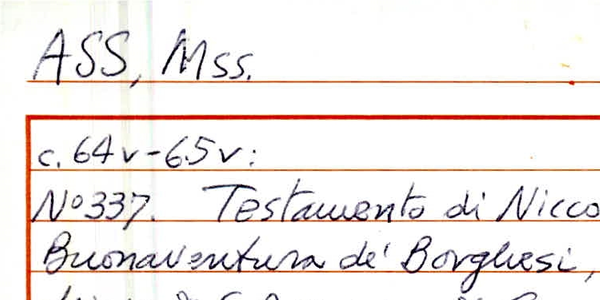 ASS, Mss.
c. 64v-65v:
N° 337. Testamento di Nicco
Buonaventura de' Borghesi,